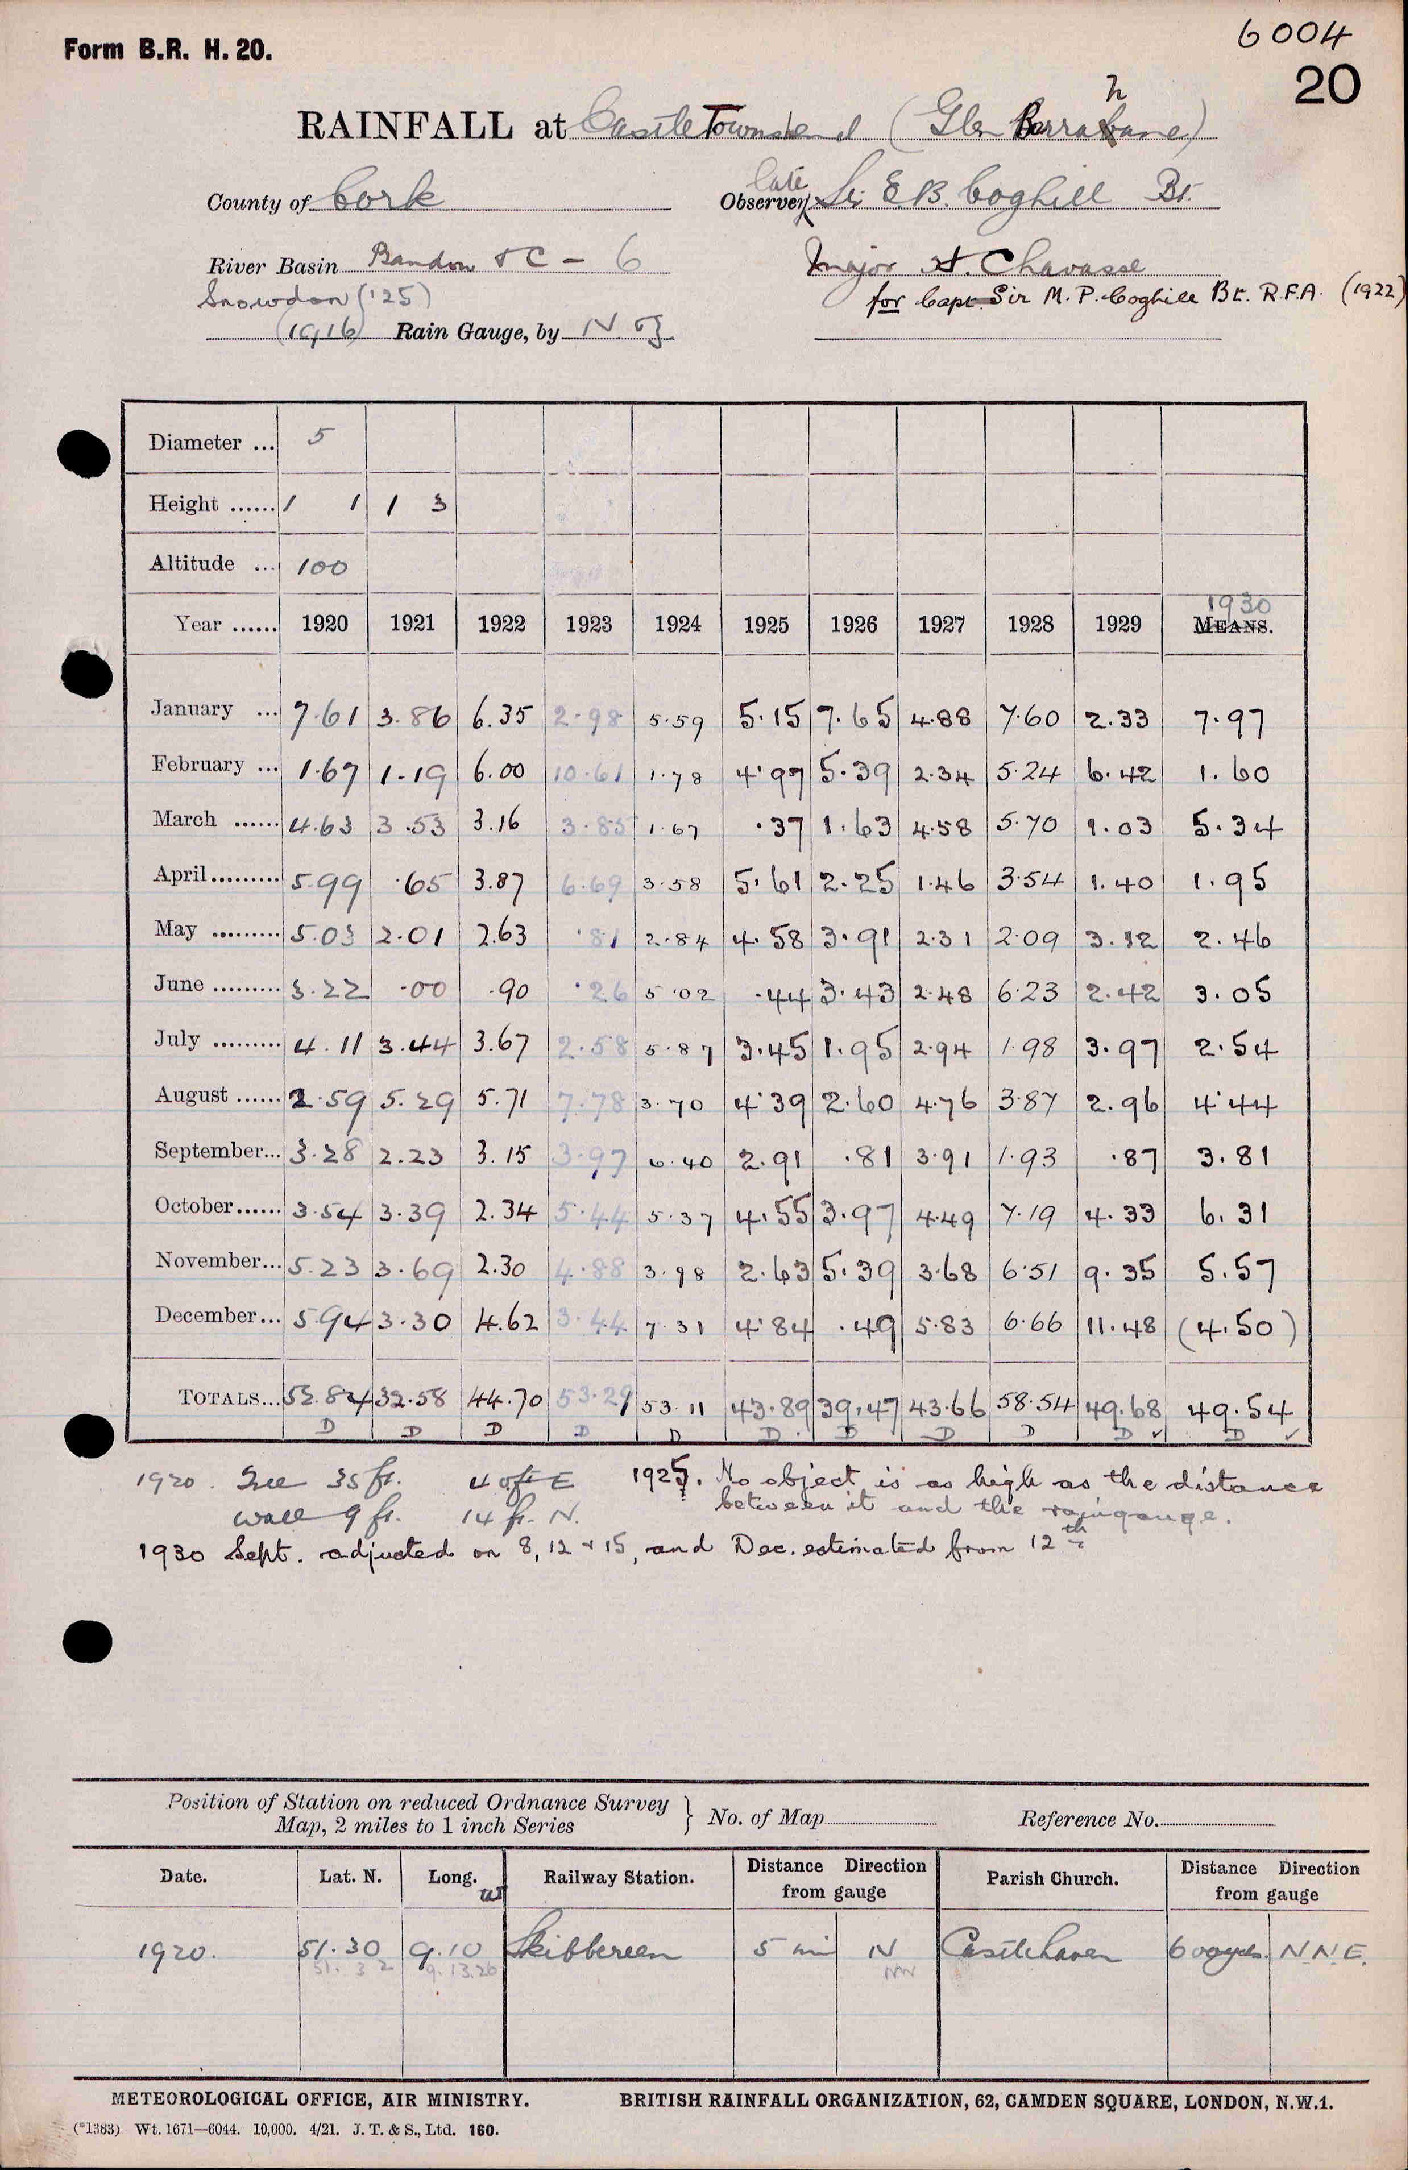 Form B.R. H. 20.
6004
20
RAINFALL at CastleTownshend (Glen Barrahane)
County of Cork
late Observer Sir E B. Coghill Bt.
River Basin Bandon & C - 6
Major H. Chavasse
Snowdon ('25)
for Capt. Sir M. P. Coghill Bt. R.F.A. (1922)
(1916) Rain Gauge, by N & Z
Diameter ... 5
Height ...... 1 1 1 3
Altitude ... 100
1930
Year ...... 1920 1921 1922 1923 1924 1925 1926 1927 1928 1929 MEANS.
January ... 7.61 3.86 6.35 2.98 5.59 5.15 7.65 4.88 7.60 2.33 7.97
February ... 1.67 1.19 6.00 10.61 1.78 4.97 5.39 2.34 5.24 6.42 1.60
March ...... 4.63 3.53 3.16 3.85 1.67 .37 1.63 4.58 5.70 1.03 5.34
April......... 5.99 .65 3.87 6.69 3.58 5.61 2.25 1.46 3.54 1.40 1.95
May ......... 5.03 2.01 2.63 .81 2.84 4.58 3.91 2.31 2.09 3.12 2.46
June ......... 3.22 .00 .90 .26 5.02 .44 3.43 2.48 6.23 2.42 3.05
July ......... 4.11 3.44 3.67 2.58 5.87 3.45 1.95 2.94 1.98 3.97 2.54
August ...... 2.59 5.29 5.71 7.78 3.70 4.39 2.60 4.76 3.87 2.96 4.44
September... 3.28 2.23 3.15 3.97 6.40 2.91 .81 3.91 1.93 .87 3.81
October...... 3.54 3.39 2.34 5.44 5.37 4.55 3.97 4.49 7.19 4.33 6.31
November... 5.23 3.69 2.30 4.88 3.98 2.63 5.39 3.68 6.51 9.35 5.57
December... 5.94 3.30 4.62 3.44 7.31 4.84 .49 5.83 6.66 11.48 (4.50)
TOTALS... 52.84 32.58 44.70 53.29 53.11 43.89 39.47 43.66 58.54 49.68 49.54
D D D D D D D D D D ✓ D ✓
1920. Tree 35 ft. 40 ft E 1925. No object is as high as the distance
wall 9 ft. 14 ft. N. between it and the raingauge.
1930 Sept. adjusted on 8, 12 & 15, and Dec. estimated from 12th
Position of Station on reduced Ordnance Survey
Map, 2 miles to 1 inch Series } No. of Map Reference No.
Date. Lat. N. Long. W Railway Station. Distance Direction from gauge Parish Church. Distance Direction from gauge
1920. 51.30 9.10 Skibbereen 5 mi N Castlehaven 600yds. N.N.E.
51.32 9.13.20 NW
METEOROLOGICAL OFFICE, AIR MINISTRY. BRITISH RAINFALL ORGANIZATION, 62, CAMDEN SQUARE, LONDON, N.W.1.
(*1383) Wt. 1671—6044. 10,000. 4/21. J. T. & S., Ltd. 160.